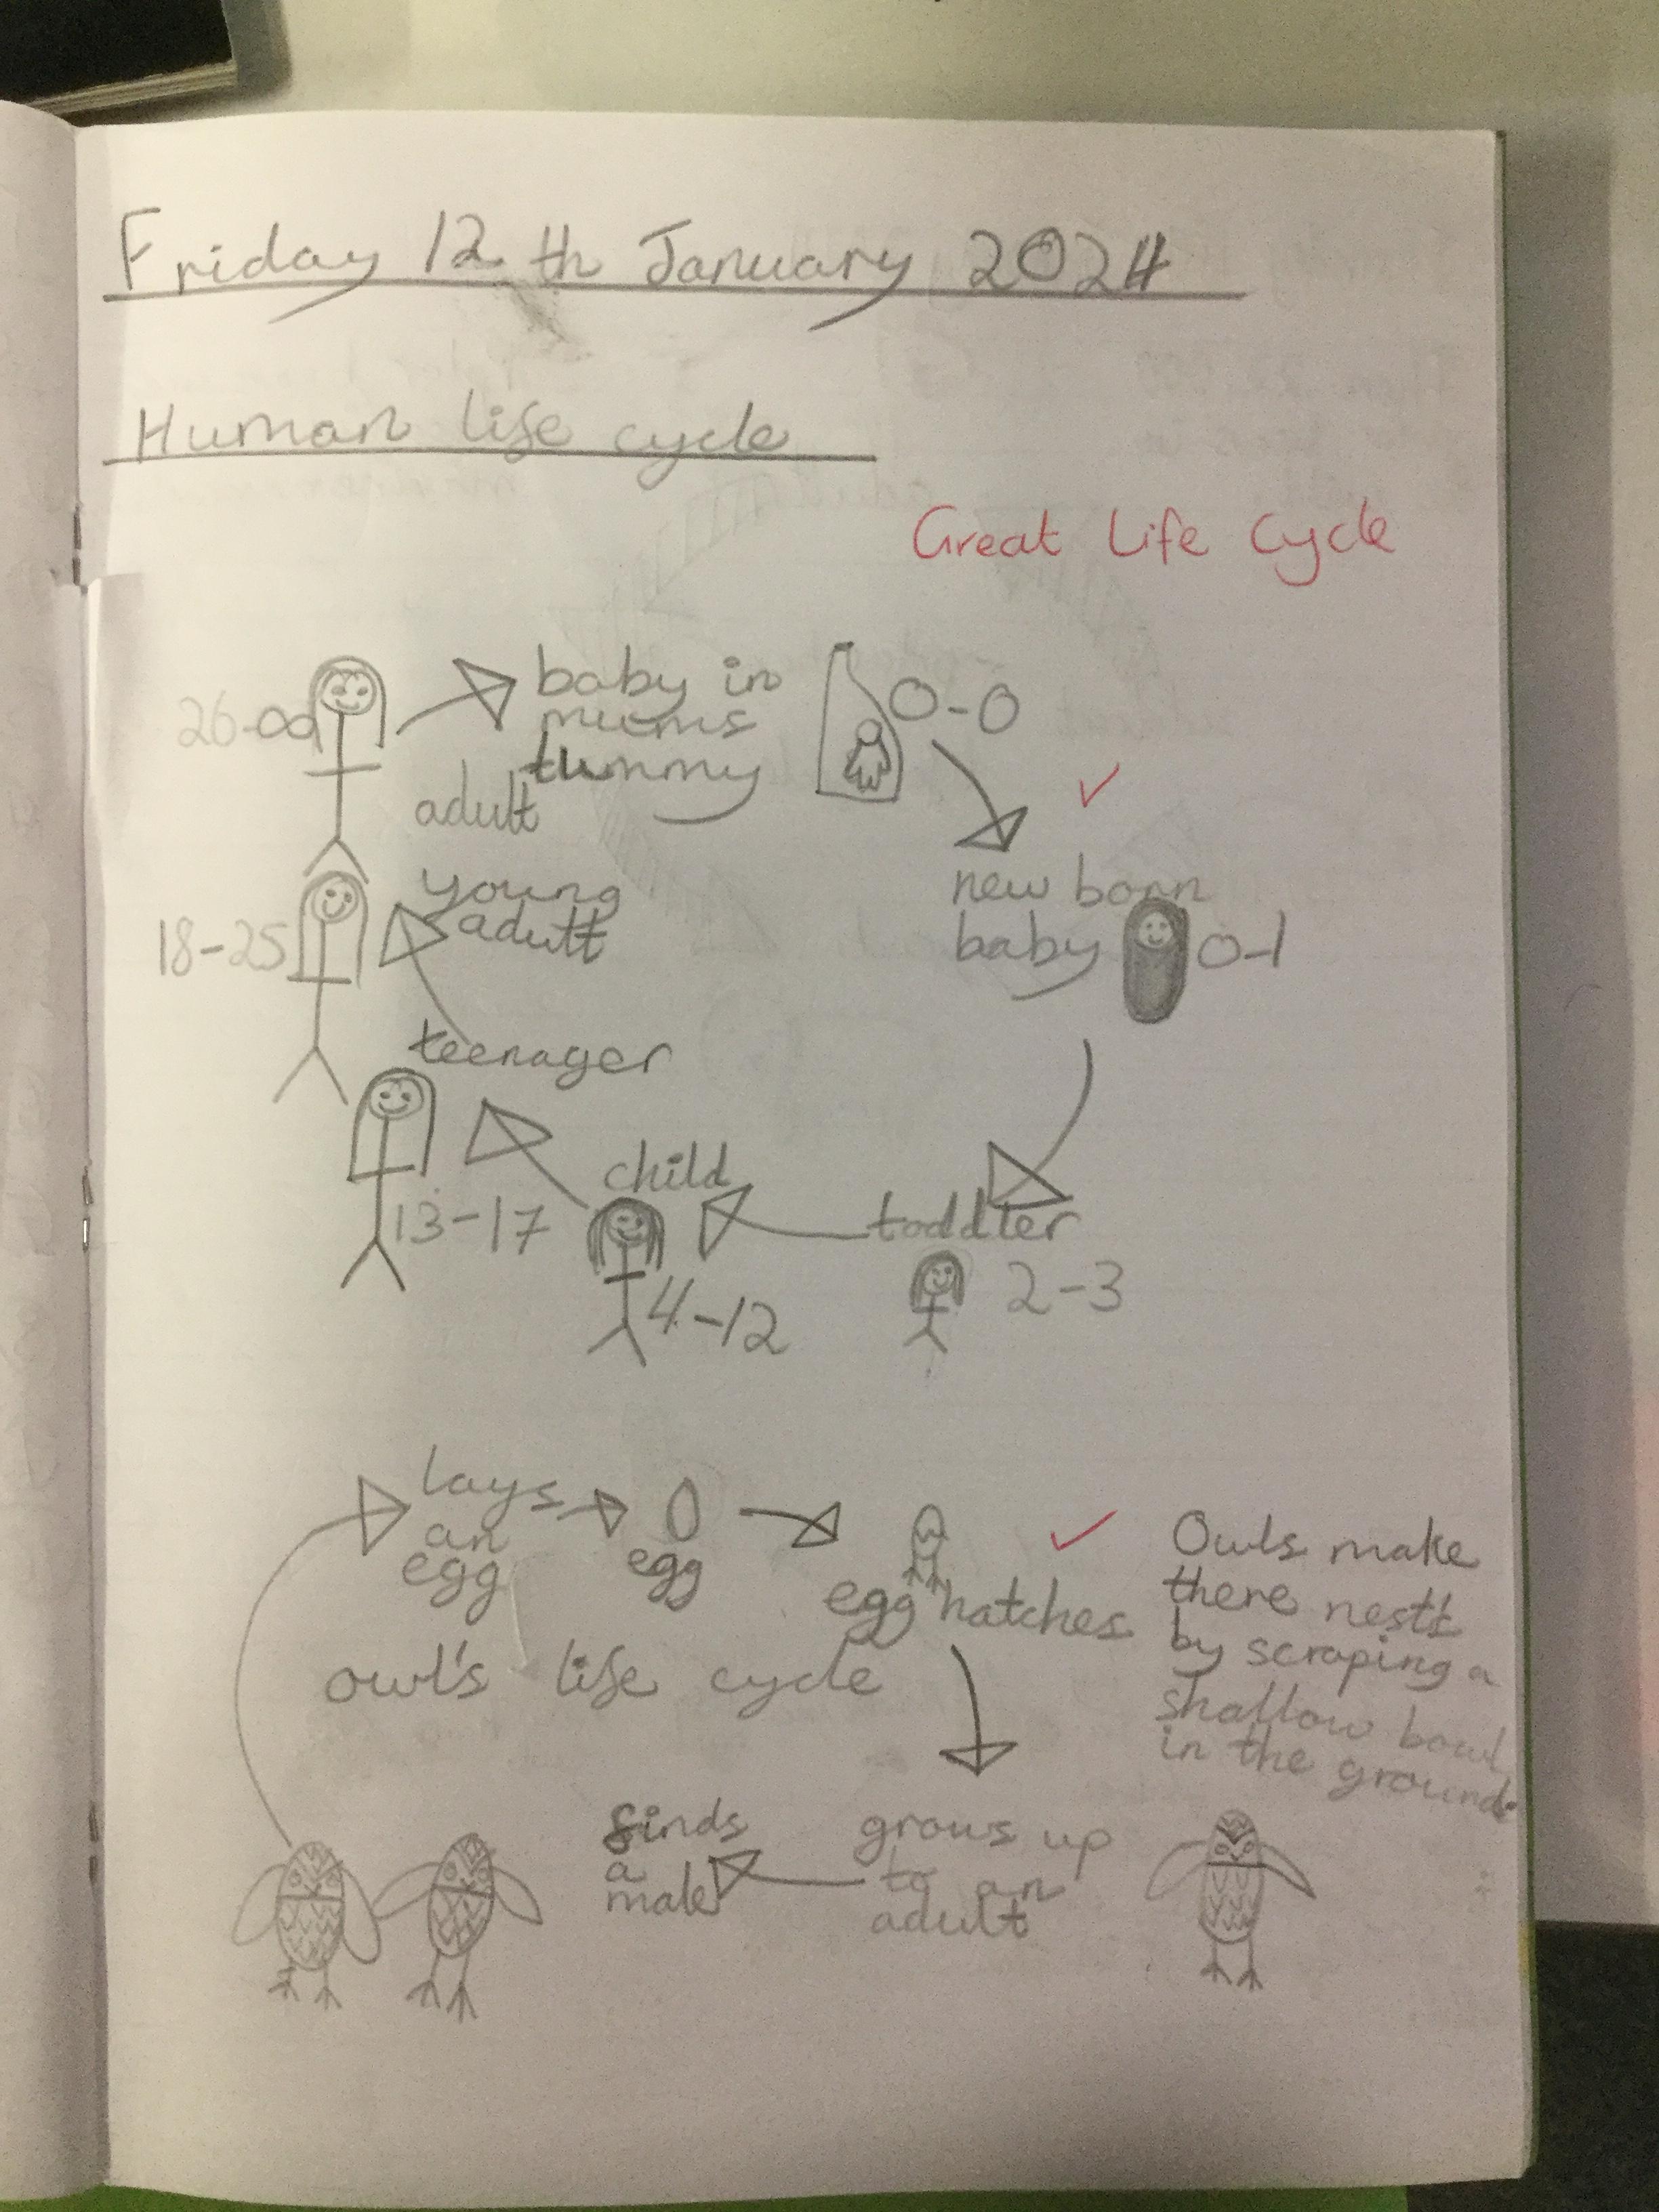 Friday 12th January 2024
Human life cycle
Great Life Cycle
baby in
mums
tummy
0-0
new born
baby
0-1
toddler
2-3
child
4-12
teenager
13-17
young
adult
18-25
adult
26-∞
lays
an
egg
egg
egg hatches
owl's life cycle
grows up
to an
adult
finds
a
male
Owls make
there nest's
by scraping a
shallow bowl
in the ground.